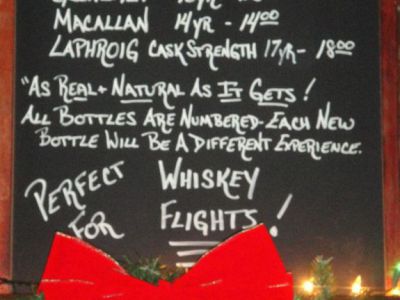 MACALLAN 14YR - 14.00
LAPHROIG CASK STRENGTH 17YR - 18.00
"AS REAL + NATURAL AS IT GETS!
ALL BOTTLES ARE NUMBERED - EACH NEW
BOTTLE WILL BE A DIFFERENT EXPERIENCE.
PERFECT WHISKEY
FOR FLIGHTS!